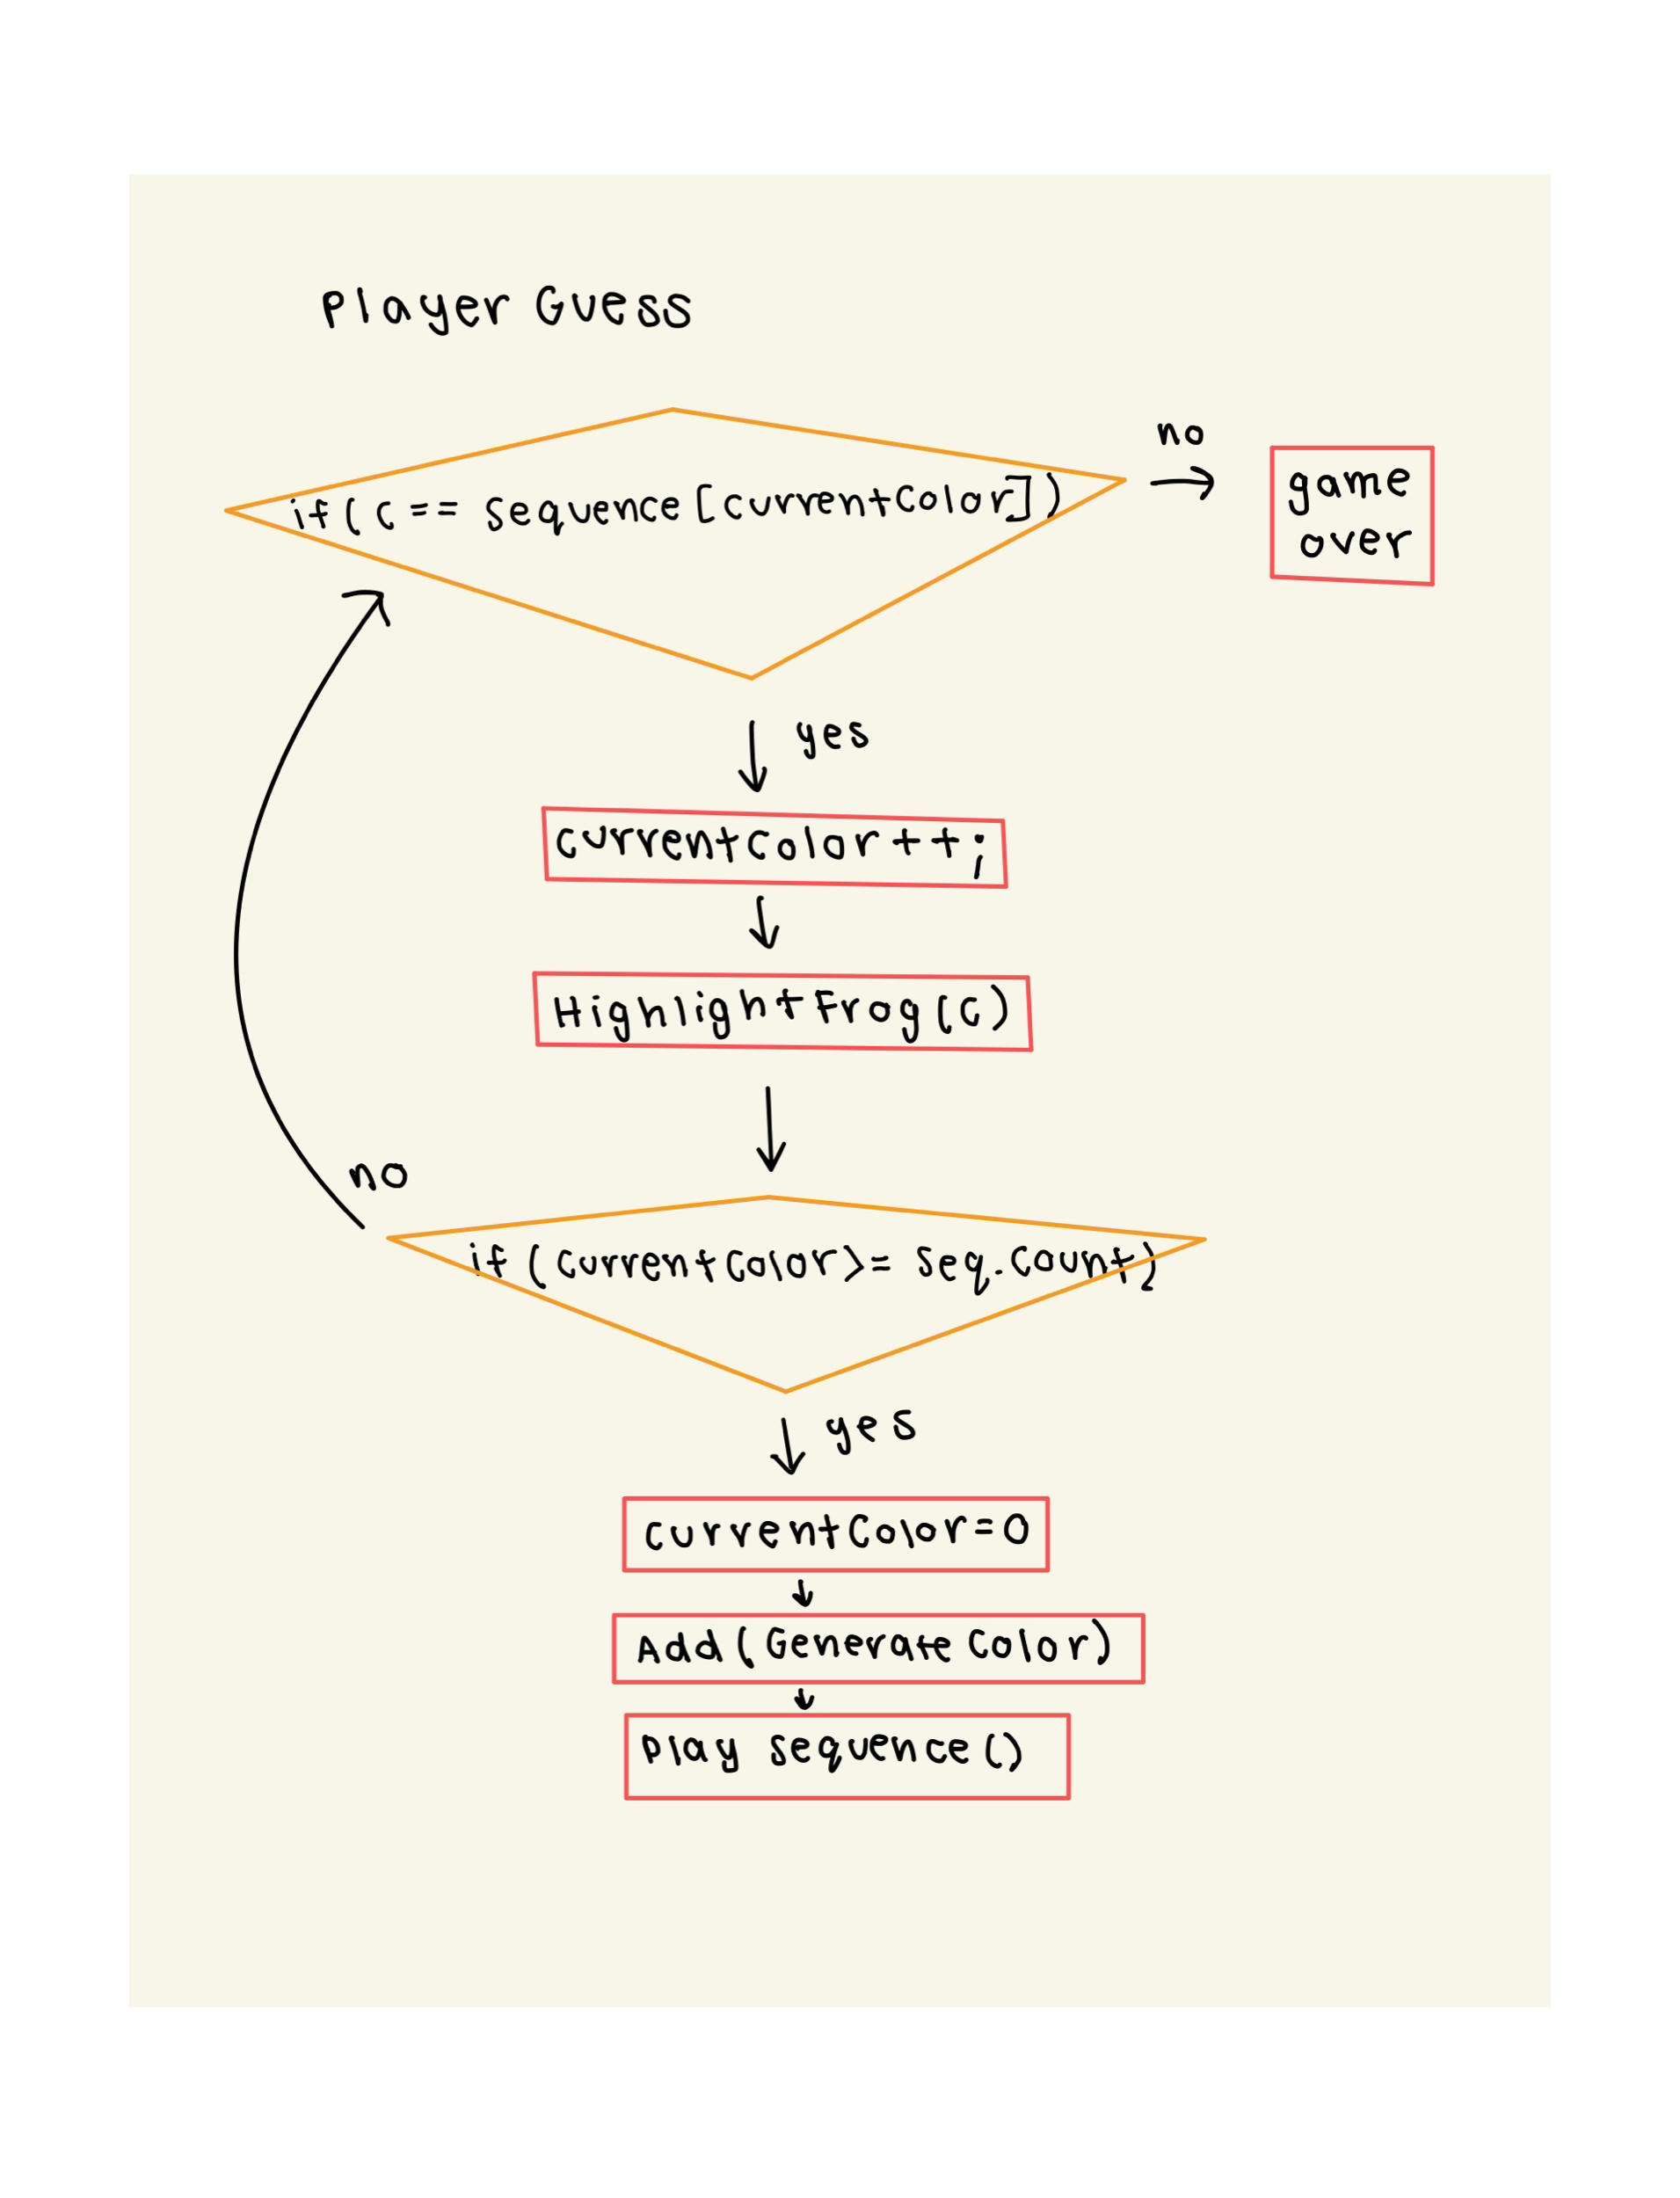 Player Guess
if (c == sequence[currentColor])
no
game
over
yes
currentColor++;
HighlightFrog(c)
no
if (currentColor >= seq.Count)
yes
currentColor=0
Add(GenerateColor)
play sequence()